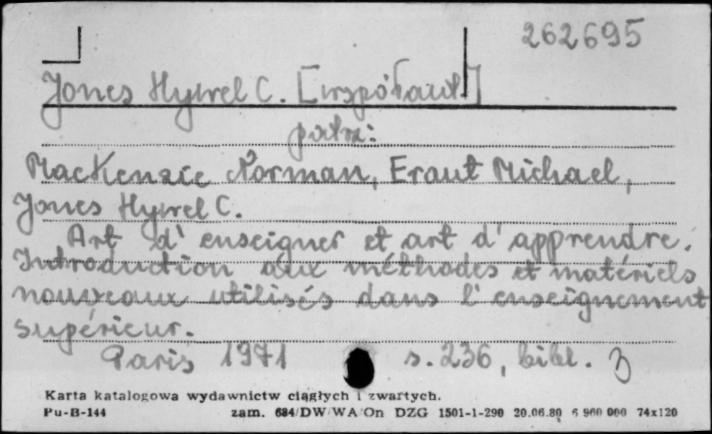 262695
Jones Hywel C. [współaut.]
patrz:
MacKenzie Norman, Eraut Michael,
Jones Hywel C.
Art d'enseigner et art d'apprendre.
Introduction aux méthodes et matériels
nouveaux utilisés dans l'enseignement
supérieur.
Paris 1971 s. 236, bibl.
Karta katalogowa wydawnictw ciągłych i zwartych.
Pu-B-144 zam. 684/DW/WA/On DZG 1501-1-290 20.06.80 6 960 000 74x120